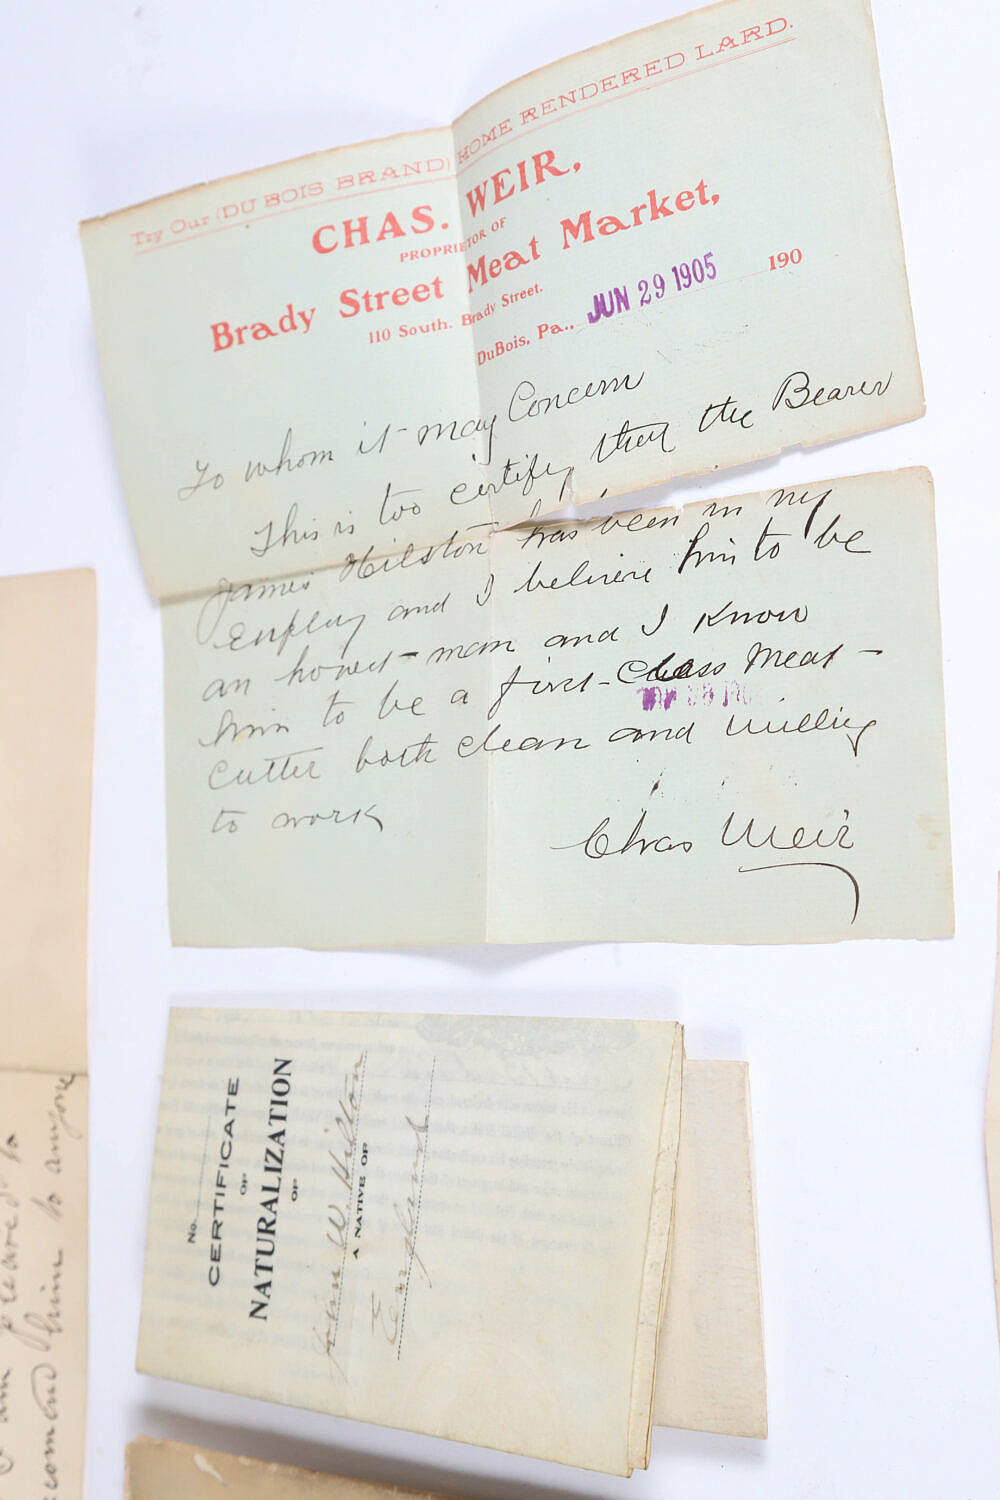 Try Our (DU BOIS BRAND) HOME RENDERED LARD.
CHAS. WEIR,
PROPRIETOR OF
Brady Street Meat Market,
110 South. Brady Street.
DuBois, Pa., JUN 29 1905 190
To whom it may Concern
This is too certify that the Bearer
James Hilston has been in my
Employ and I believe him to be
an honest man and I Know
him to be a first-Class Meat-
Cutter both clean and willing
to work
Chas Weir
No.
CERTIFICATE
OF
NATURALIZATION
OF
John W. Hilton
A NATIVE OF
England
I am pleased to
him to anyone